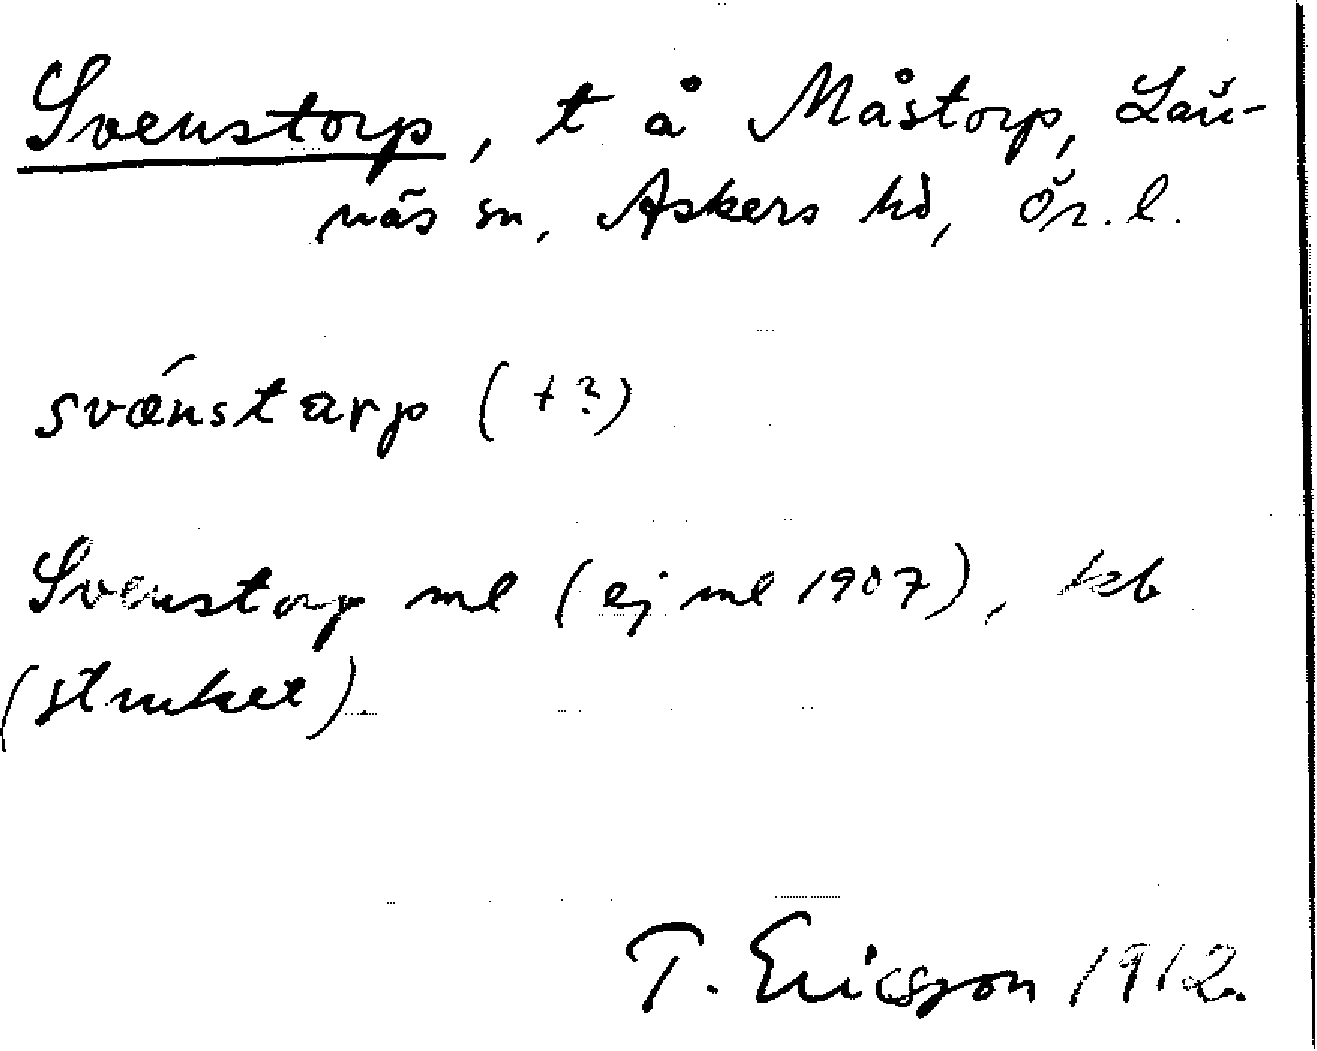 Svenstorp, t å Måstorp, Län-
näs sn, Askers hd, Ör. l.
svǽnstarp (+?)
Svenstorp ml (ej ml 1907), kb
(struket)
T. Ericsson 1912.